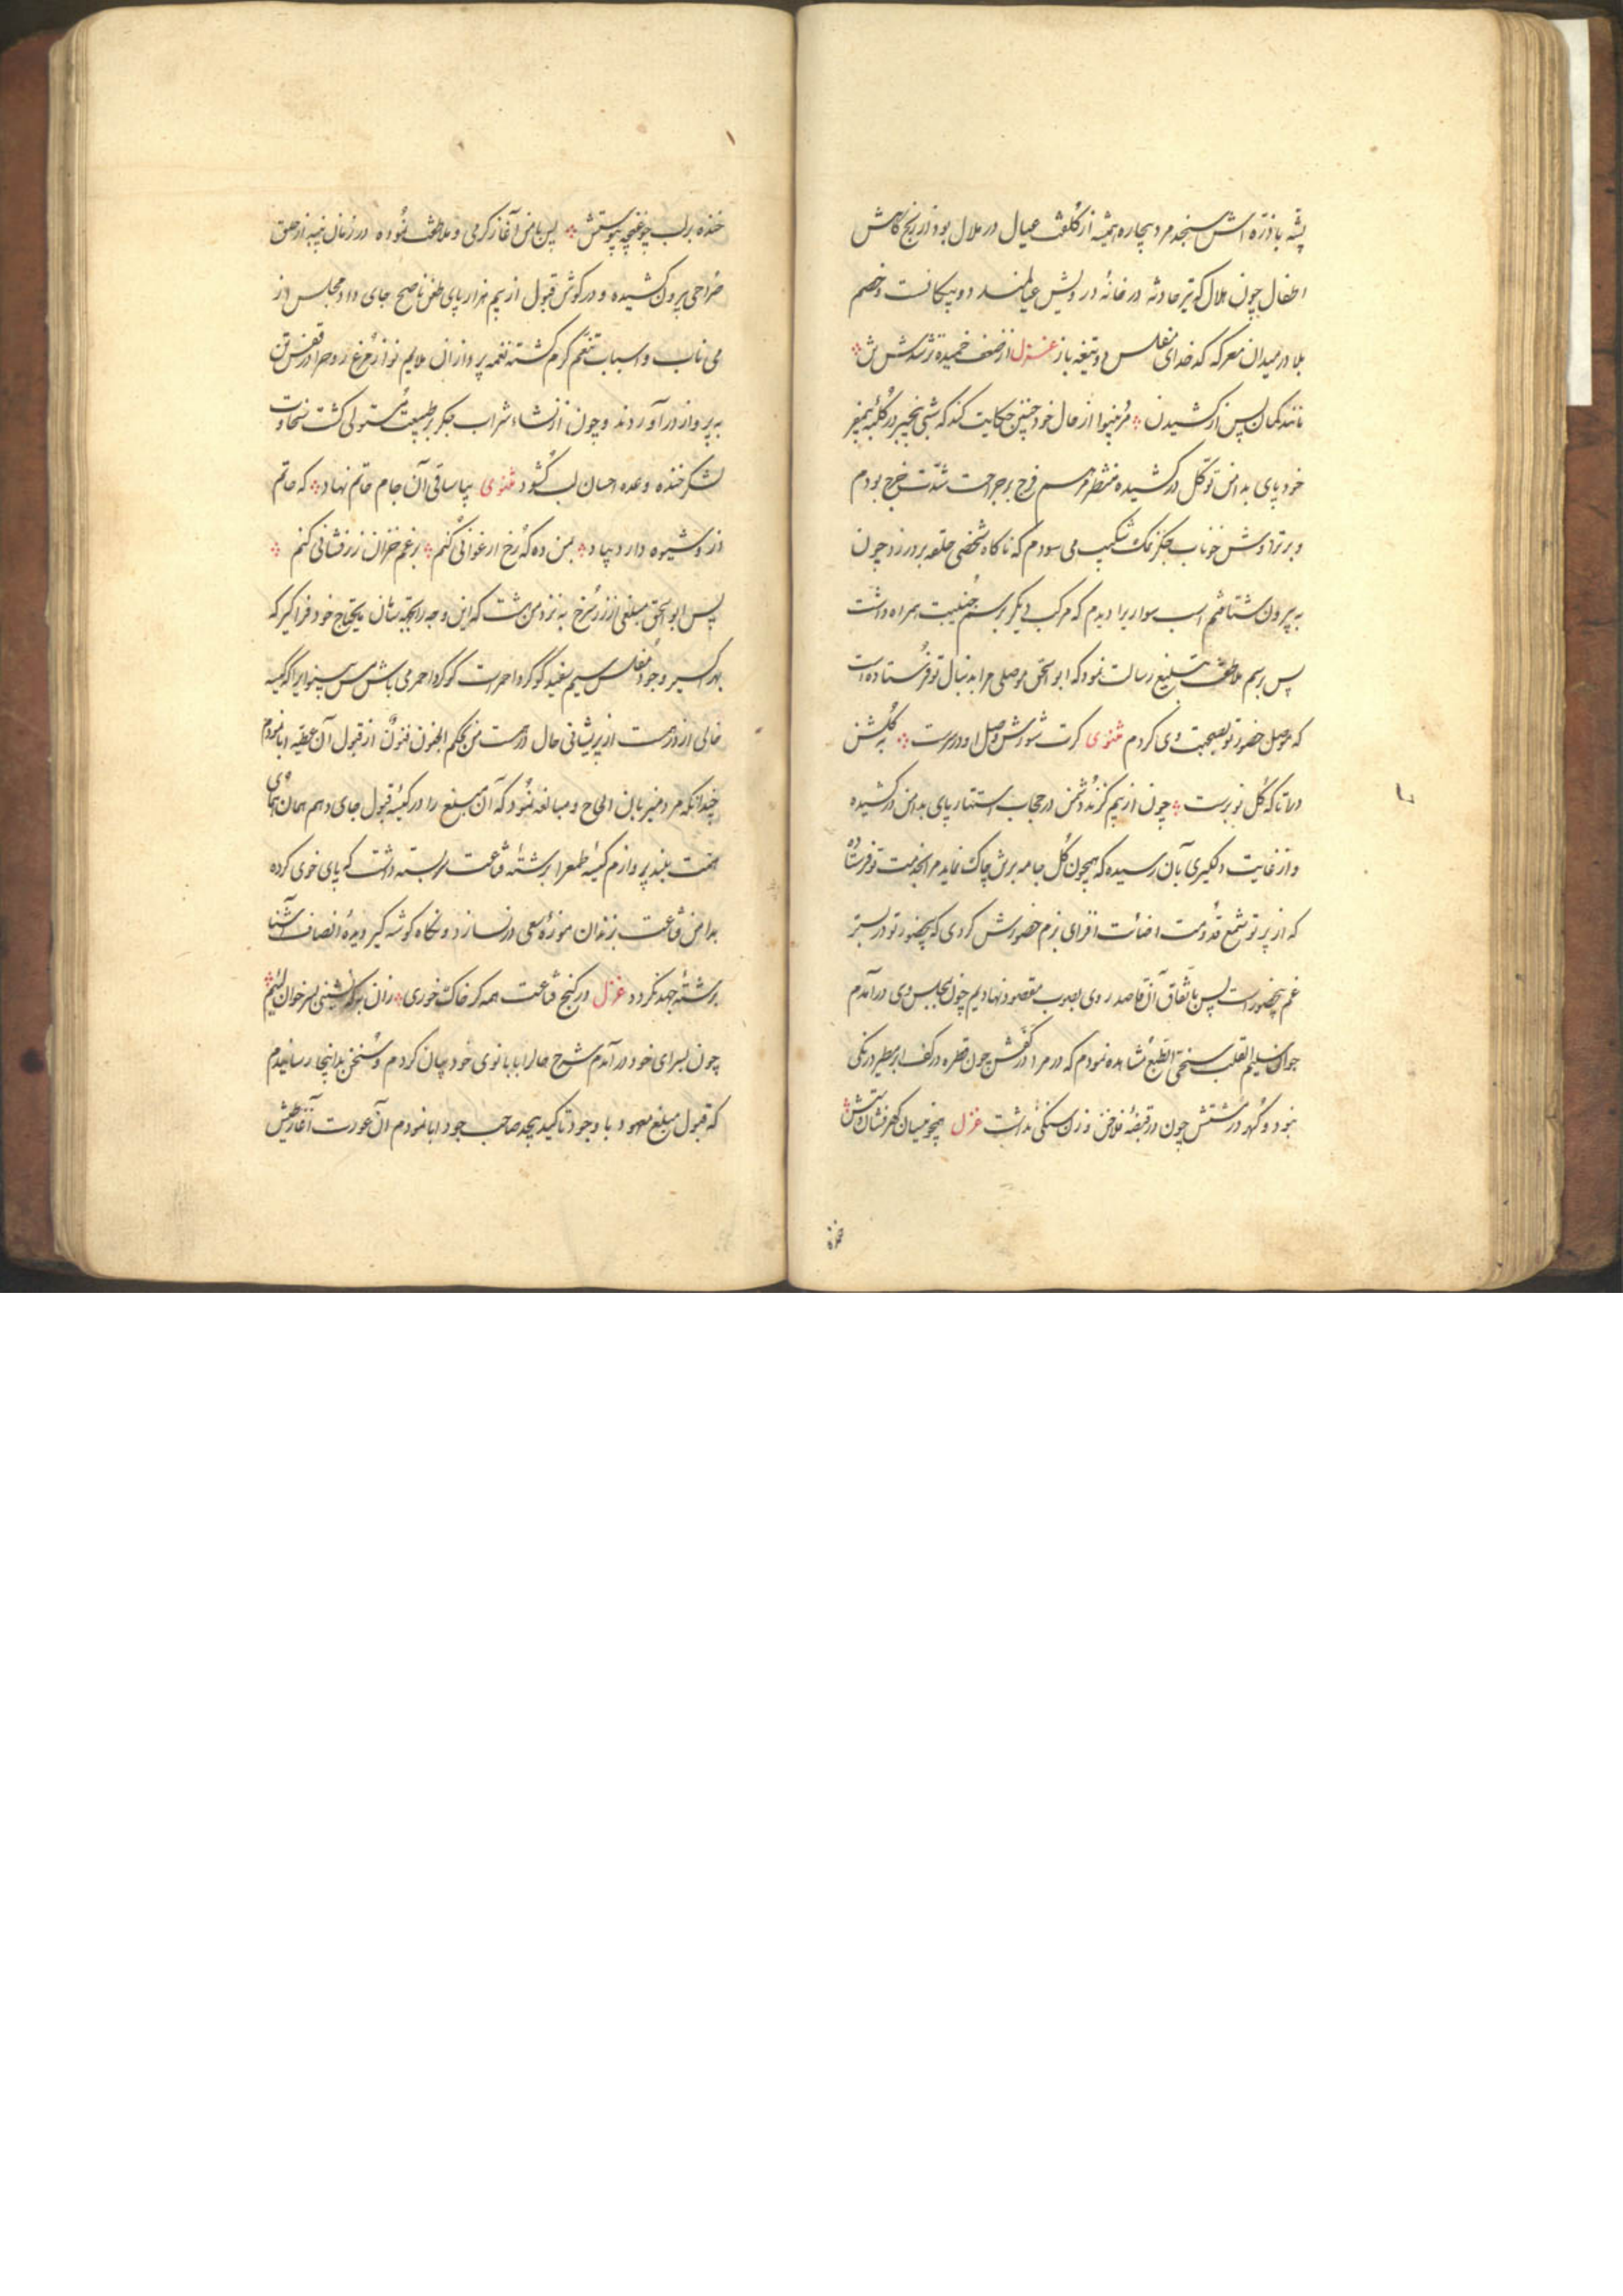 پشه با ذره اش سنجد مرد بیچاره همیشه از کلفت عیال در ملال بود از رنج کاهش
اطفال چون هلال که تیر حادثه در خانه درویش عیالمند دو پیکانست و خصم
بلا در میدان معرکه کدخدای مفلس دو تیغه باز غزل از ضعف خمیده تر شدش
مانند کمان پس از کشیدن مرد بینوا از حال خود چنین حکایت کند که شبی در کلبه
خود پای بدامن توکل درکشیده منتظر مرهم فرح بر جراحت شدت خرج بودم
و بر تراوش خوناب جگر نمک شکیب می سودم که ناگاه شخصی حلقه بر در زد چون
به بیرون شتافتم اسب سواریرا دیدم که مرکب دیگر برسم جنیبت همراه داشت
پس برسم ملاطفت تبلیغ رسالت نمود که ابو اسحق موصلی مرا بدنبال تو فرستاده است
که موصل حضور تو بصحبت وی کردم مثنوی کرت شورش وصل او در سرست به گلشن
درآ تا که گل نوبرست چون از بیم گزند دشمن در حجاب استتار پای بدامن درکشیده
و از غایت دلگیری بآن رسیده که همچون گل جامه برتن چاک نماید مرا بخدمت تو فرستاده
که از پرتو شمع قدومت اضائت افزای بزم حضورش گردی که بیحضور تو در بستر
غم بیحضور است پس باتفاق آن قاصد روی بصوب مقصود نهادیم چون بمجلس وی درآمدم
جوان سلیم القلب سخی الطبع مشاهده نمودم که درم را در کفش چون قطره در کف ابر مطیر درنگی
نبود و گهر در مشتش چون در قبضه فلاخن وزن سنگی نداشت غزل همچو میان گهرفشان دستش
خنده
خنده بر لب چو غنچه پیوستش پس با من آغاز گرمی و ملاطفت نموده در زمان پنبه از حلق
صراحی بیرون کشیده و در گوش قبول از بیم هزارپای طعن ناصح جای داد و مجلس از
می ناب و اسباب تنعم گرم گشته نغمه پردازان ملایم نواز مرغ روح را در قفس تن
به پرواز درآوردند و چون از نشاء شراب جگر بر طبیعت مستولی گشت سخاوت
لشکر خنده وعده احسان لب گشود مثنوی بیا ساقی آن جام حاتم نهاد که حاتم
ازو شیوه دارد بیاد بمن ده که رخ ارغوانی کنم برغم خزان زرفشانی کنم
پس ابو اسحق مبلغی از زر سرخ به نزد من هشت که این وجه را بجهة سایر مایحتاج خود فراگیر که
بهر اکسیر وجود مفلس سیم سفید گوگرد احمرست گوگرد احمر می باش مس بینوایرا که کیسه
خالی از زرست از پریشانی حال درست من بحکم الجنون فنون از قبول آن عطیه ابا نمودم
چندانکه مرد میزبان الحاح و مبالغه نمود که آن مبلغ را در کیسه قبول جای دهم همان همای
همت بلند پروازم کیسه طمع را برشته قناعت سربسته داشت که پای خوی کرده
بدامن قناعت بزندان موزه سعی در نسازد و نگاه گوشه گیر دیده انصاف آشنا
برشته جهد نگردد غزل در کنج قناعت همه گر خاک خوری زان به که نشینی بسر خوان لئیم
چون بسرای خود درآمدم شرح حال را با بانوی خود بیان کردم و سخن بدانجا رسانیدم
که قبول مبلغ معهود با وجود تاکید بیحد صاحب جود ابا نمودم آن عورت آغاز طیش